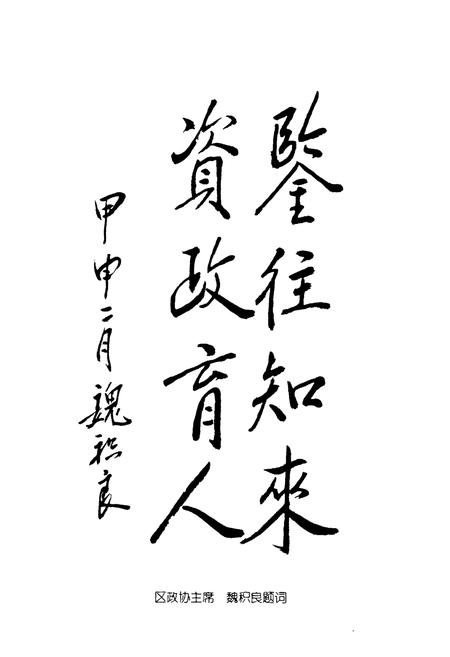 鍳往知來
資政育人
甲申二月 魏积良
区政协主席　魏积良题词